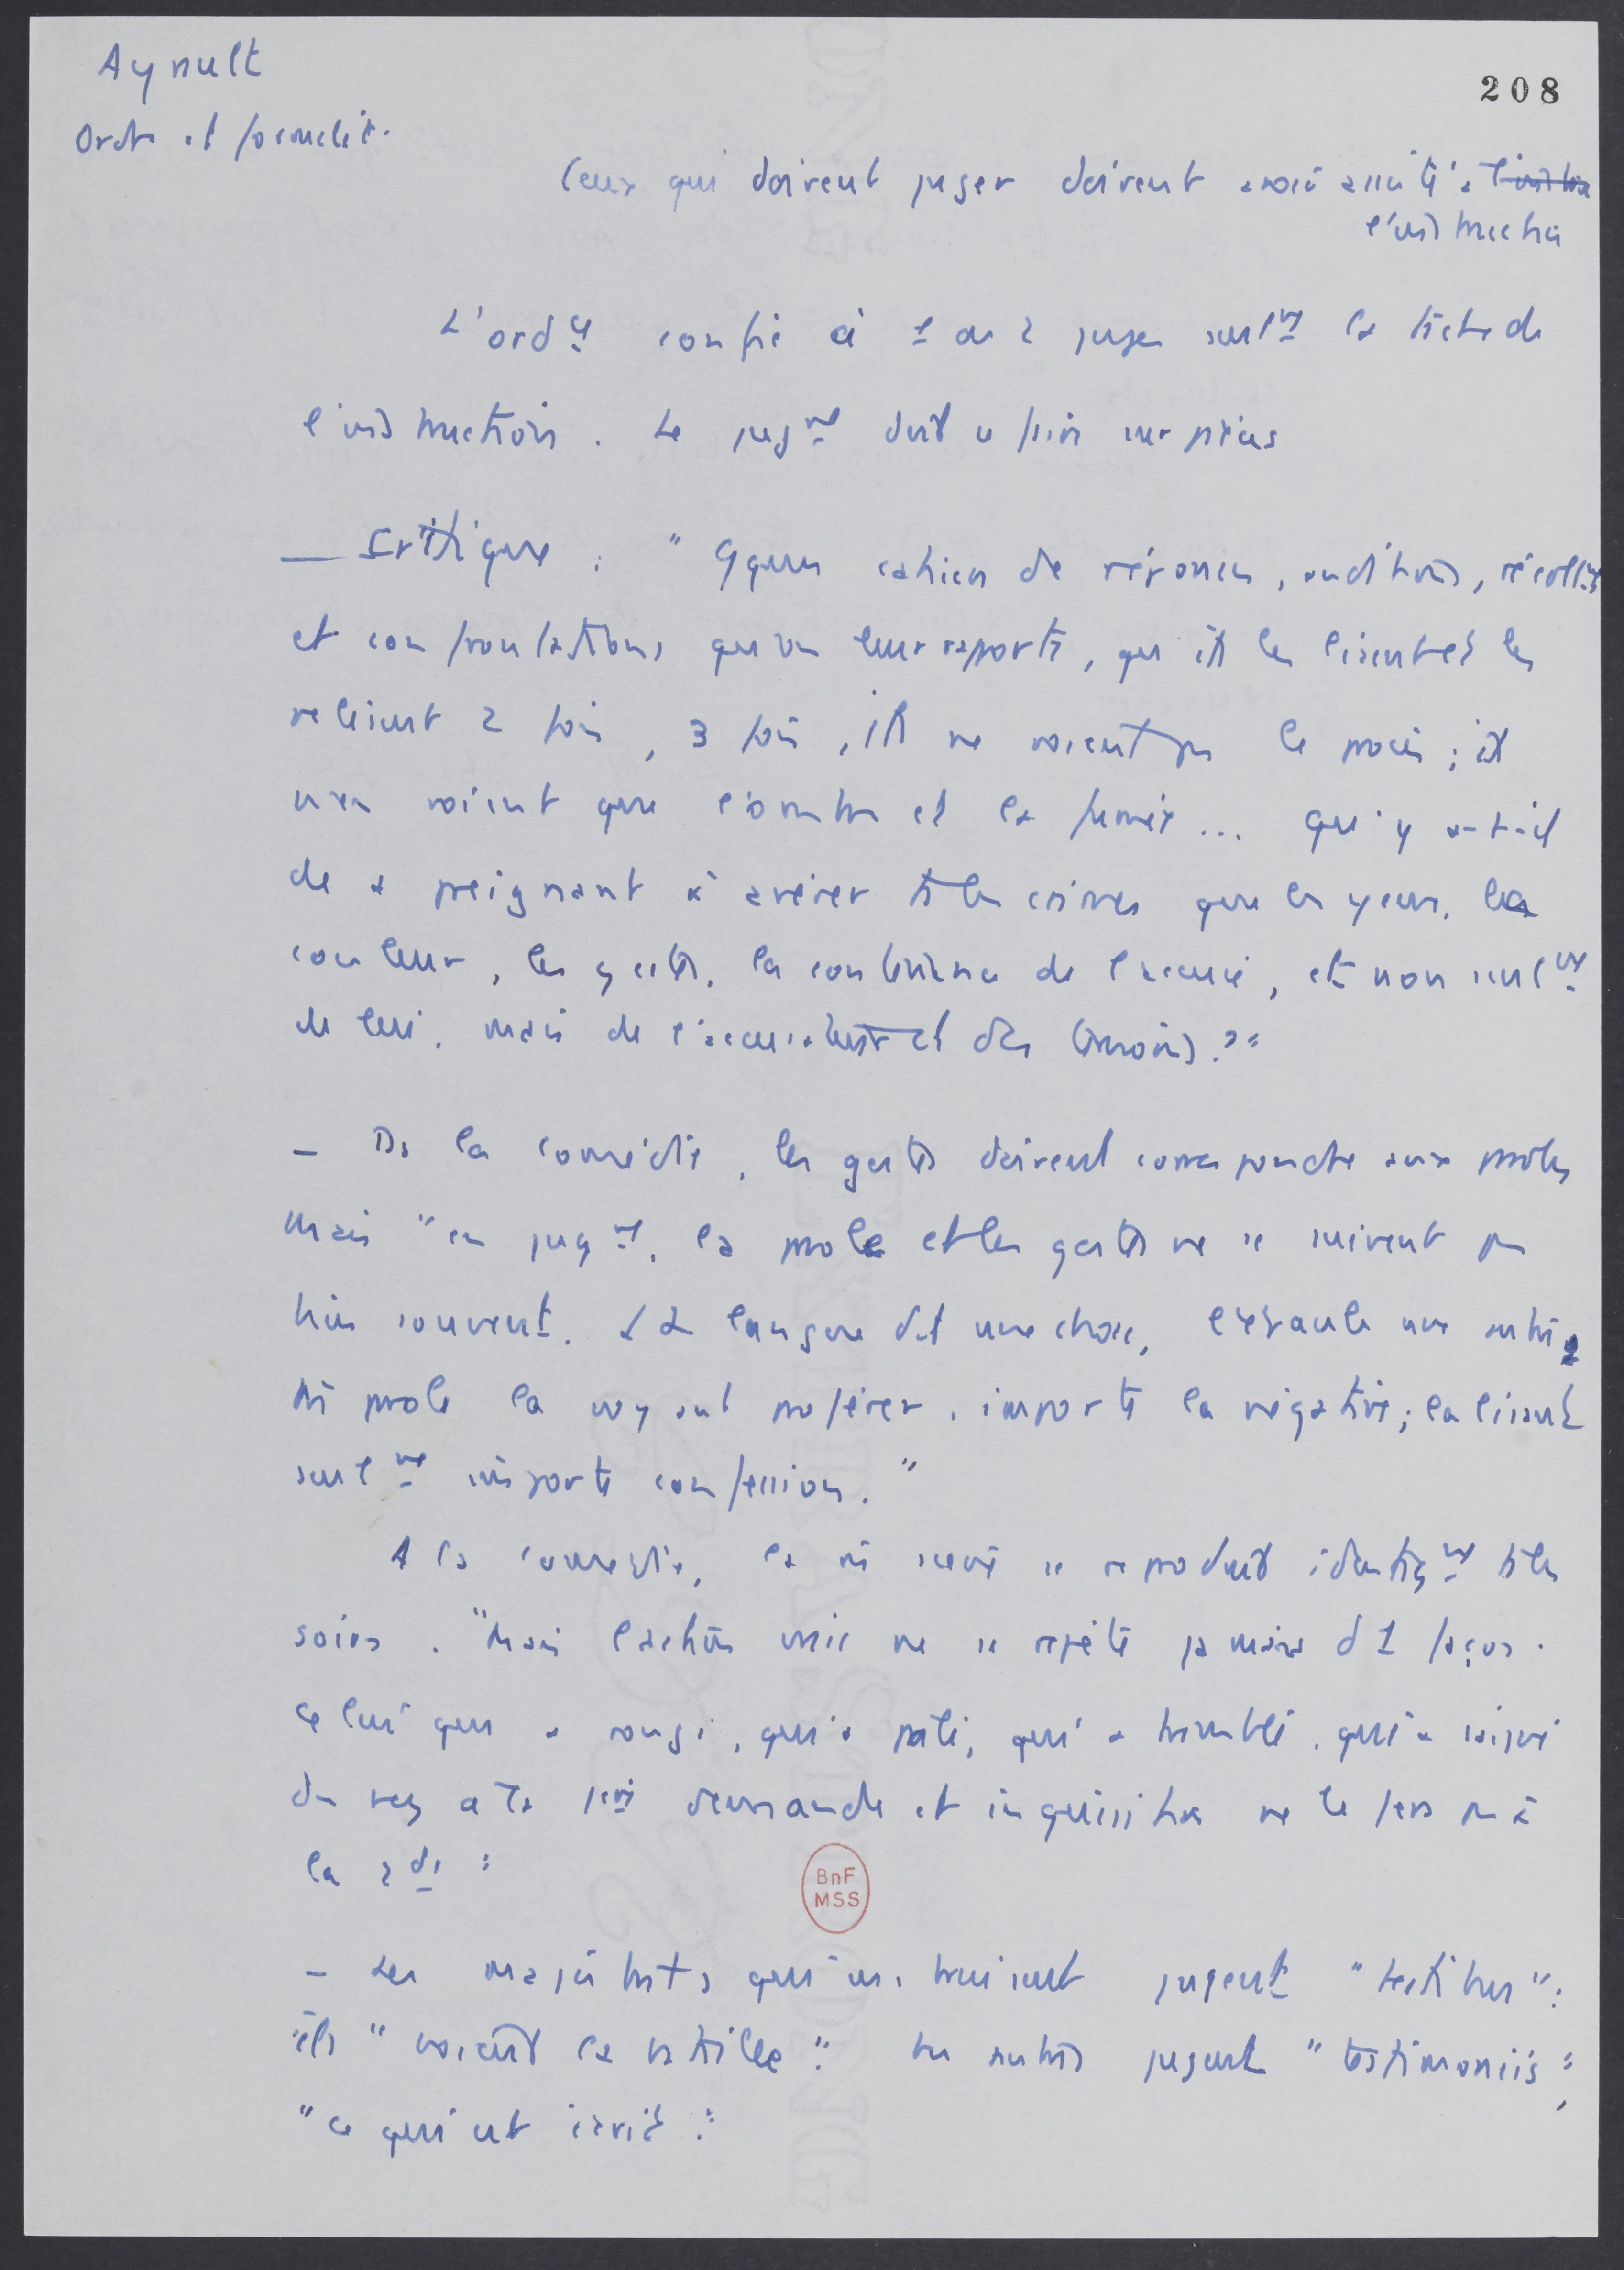 Ayrault
208
Ordre et formalité.
Ceux qui doivent juger doivent avoir assisté à l'instruction
l'instruction
L'ordce confie à 1 ou 2 juges seulmt la tâche de
l'instruction. Le jugmt doit se faire sur pièces
— Critique : " Qques cahiers de réponses, auditions, récollmts
et confrontations qu'on leur apporte, qu'ils les lisent et les
relisent 2 fois, 3 fois, ils ne voient pas le procès ; ils
n'en voient que l'ombre et la fumée... Qu'y a-t-il
de + preignant à avérer ts les crimes que les yeux, la
couleur, les gestes, la contenance de l'accusé, et non seulmt
de lui, mais de l'accusateur et des témoins ? "
— Ds la comédie, les gestes doivent correspondre aux paroles
mais " en jugmt, la parole et les gestes ne se suivent pas
bien souvent. La langue dit une chose, l'espaule une autre
parole la voyant proférer, importe la négative ; la lisant
seulmt importe confession. "
A la comédie, la m scène se reproduit identiqmt ts les
soirs. " Mais l'action vraie ne se répète jamais d'1 façon.
Celui qui a rougi, qui a pâli, qui a tremblé, qui a
du nez à la 1ère demande et inquisition ne le fera pas à
la 2de "
BnF
MSS
— Les magistrats qui instruisent jugent " testibus " :
ils " voient la bataille ". Les autres jugent " testimoniis ",
" ce qui est écrit ".